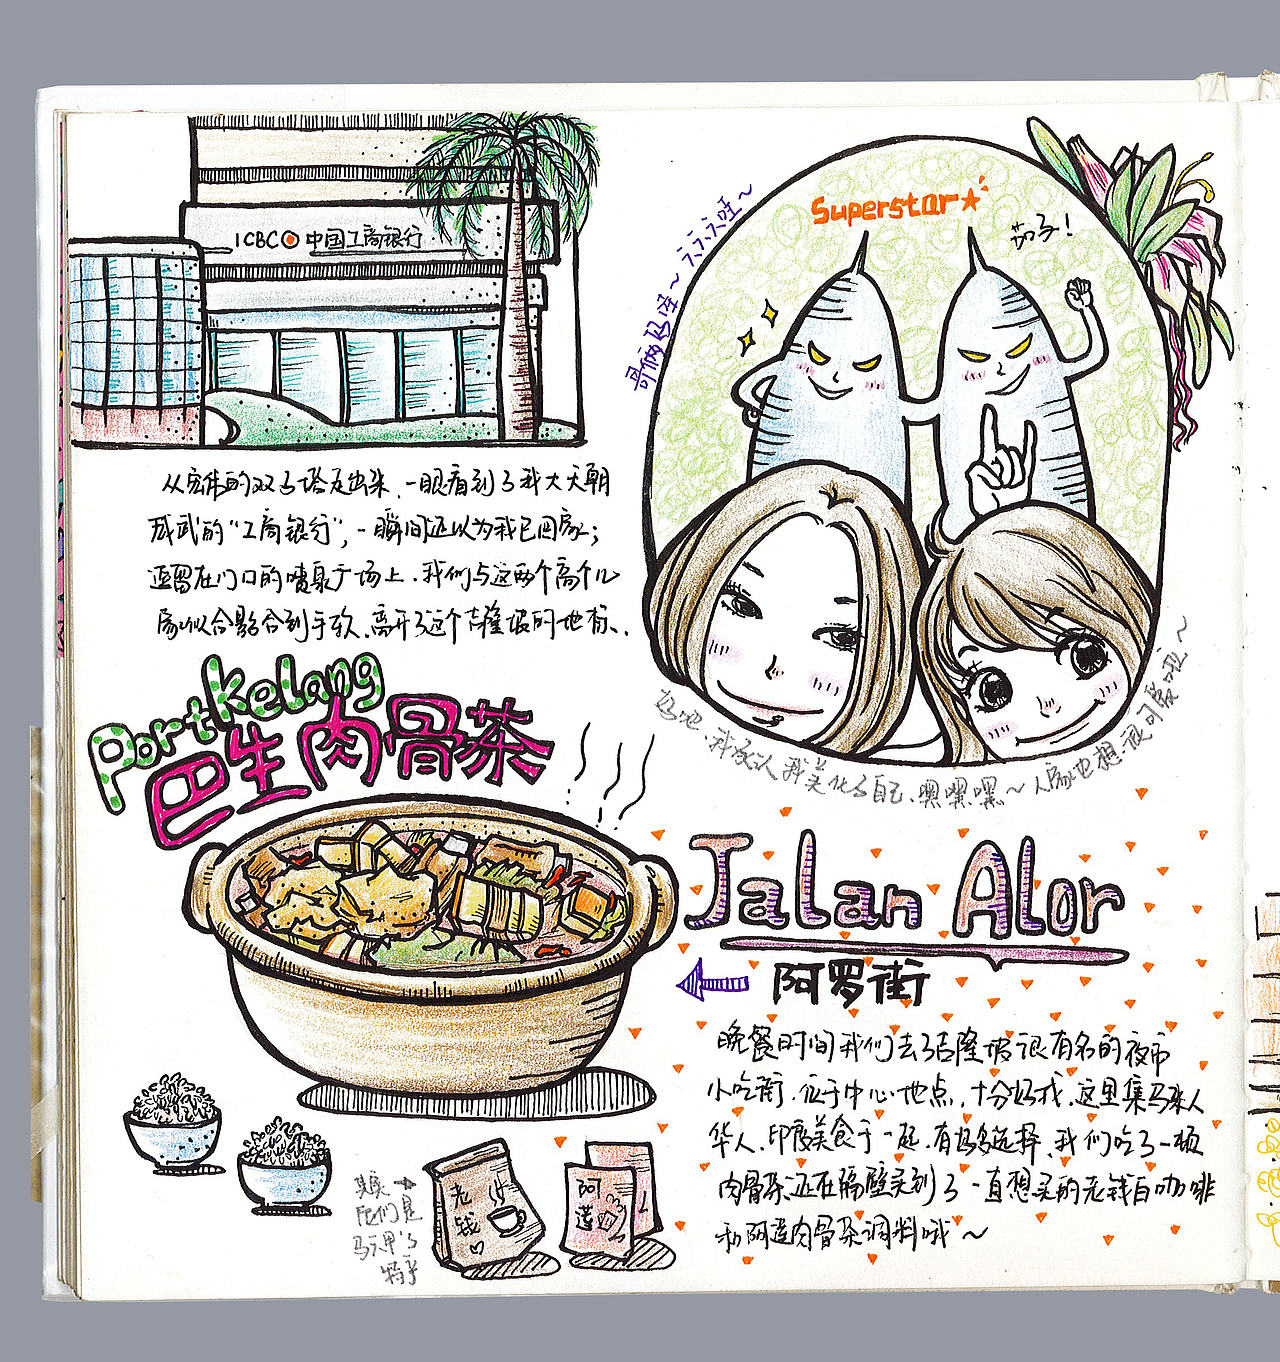 ICBC 中国工商银行
从宏伟的双子塔走出来，一眼看到了我大天朝
威武的“工商银行”，一瞬间还以为我已回家；
逗留在门口的喷泉广场上，我们与这两个高个儿
家伙合影合到手软，离开了这个吉隆坡的地标、
Superstar
茄子！
哥俩好哇~ 六六六哇~
妈吧，我承认我美化了自己，噢嘿嘿~人家也想很可爱啦~
Portkelang
巴生肉骨茶
Jalan Alor
阿罗街
晚餐时间我们去了吉隆坡很有名的夜市
小吃街，位于中心地点，十分好找，这里集马来人
华人、印度美食于一起，有好多选择，我们吃了一顿
肉骨茶，还在隔壁买到了一直想买的老钱白咖啡
和阿莲肉骨茶调料哦~
其实
它们是
马六甲's
特产
老钱
阿莲